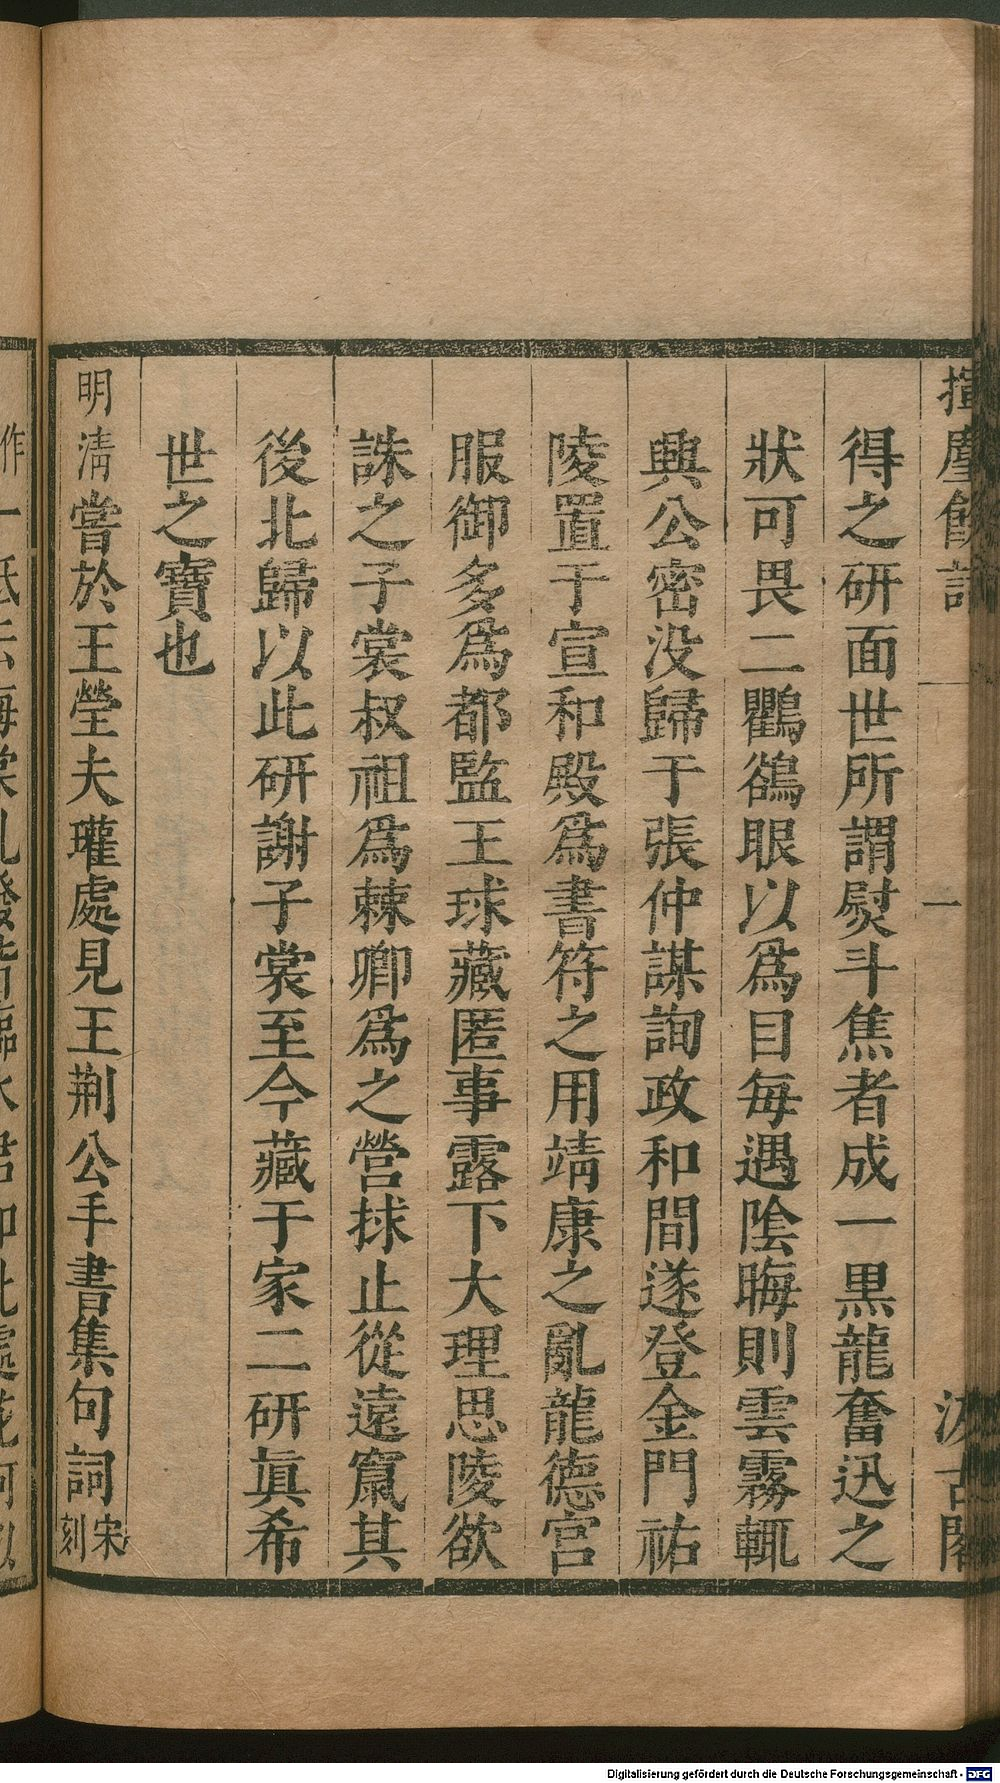 揮麈餘話 一 汲古閣
得之研面世所謂熨斗焦者成一黑龍奮迅之
狀可畏二鸜鵒眼以爲目每遇陰晦則雲霧輒
興公密没歸于張仲謀詢政和間遂登金門祐
陵置于宣和殿爲書符之用靖康之亂龍德宫
服御多爲都監王球藏匿事露下大理思陵欲
誅之子裳叔祖爲棘卿爲之營捄止從遠竄其
後北歸以此研謝子裳至今藏于家二研眞希
世之寶也
明清嘗於王瑩夫瓘處見王荆公手書集句詞宋刻
Digitalisierung gefördert durch die Deutsche Forschungsgemeinschaft - DFG